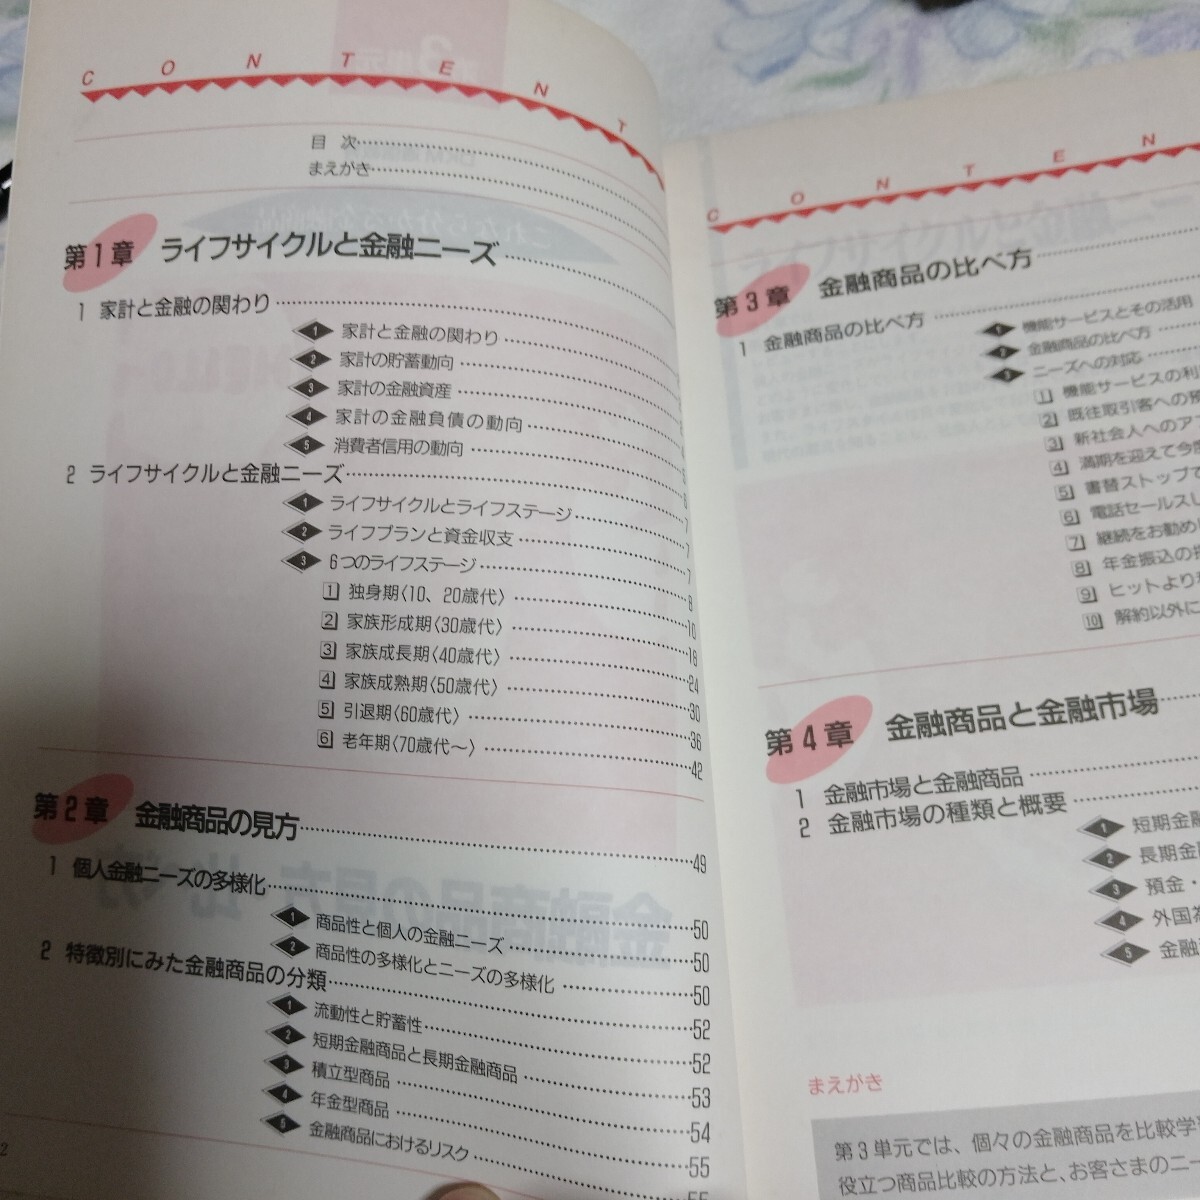 CONTENT
目 次
まえがき
第1章 ライフサイクルと金融ニーズ
1 家計と金融の関わり
1 家計と金融の関わり
2 家計の貯蓄動向
3 家計の金融資産
4 家計の金融負債の動向
5 消費者信用の動向
2 ライフサイクルと金融ニーズ
1 ライフサイクルとライフステージ 7
2 ライフプランと資金収支 7
3 6つのライフステージ 8
1 独身期〈10、20歳代〉 10
2 家族形成期〈30歳代〉 18
3 家族成長期〈40歳代〉 24
4 家族成熟期〈50歳代〉 30
5 引退期〈60歳代〉 36
6 老年期〈70歳代〜〉 42
第2章 金融商品の見方 49
1 個人金融ニーズの多様化 50
1 商品性と個人の金融ニーズ 50
2 商品性の多様化とニーズの多様化 50
2 特徴別にみた金融商品の分類 52
1 流動性と貯蓄性 52
2 短期金融商品と長期金融商品 53
3 積立型商品 54
4 年金型商品 55
5 金融商品におけるリスク
2
CONTEN
第3章 金融商品の比べ方
1 金融商品の比べ方
1 機能サービスとその活用
2 金融商品の比べ方
3 ニーズへの対応
1 機能サービスの利
2 既往取引客への預
3 新社会人へのア
4 満期を迎えて今度
5 書替ストップで
6 電話セールスし
7 継続をお勧め
8 年金振込の
9 ヒットより
10 解約以外に
第4章 金融商品と金融市場
1 金融市場と金融商品
2 金融市場の種類と概要
1 短期金融
2 長期金
3 預金・
4 外国
5 金融
まえがき
第3単元では、個々の金融商品を比較学
役立つ商品比較の方法と、お客さまのニー